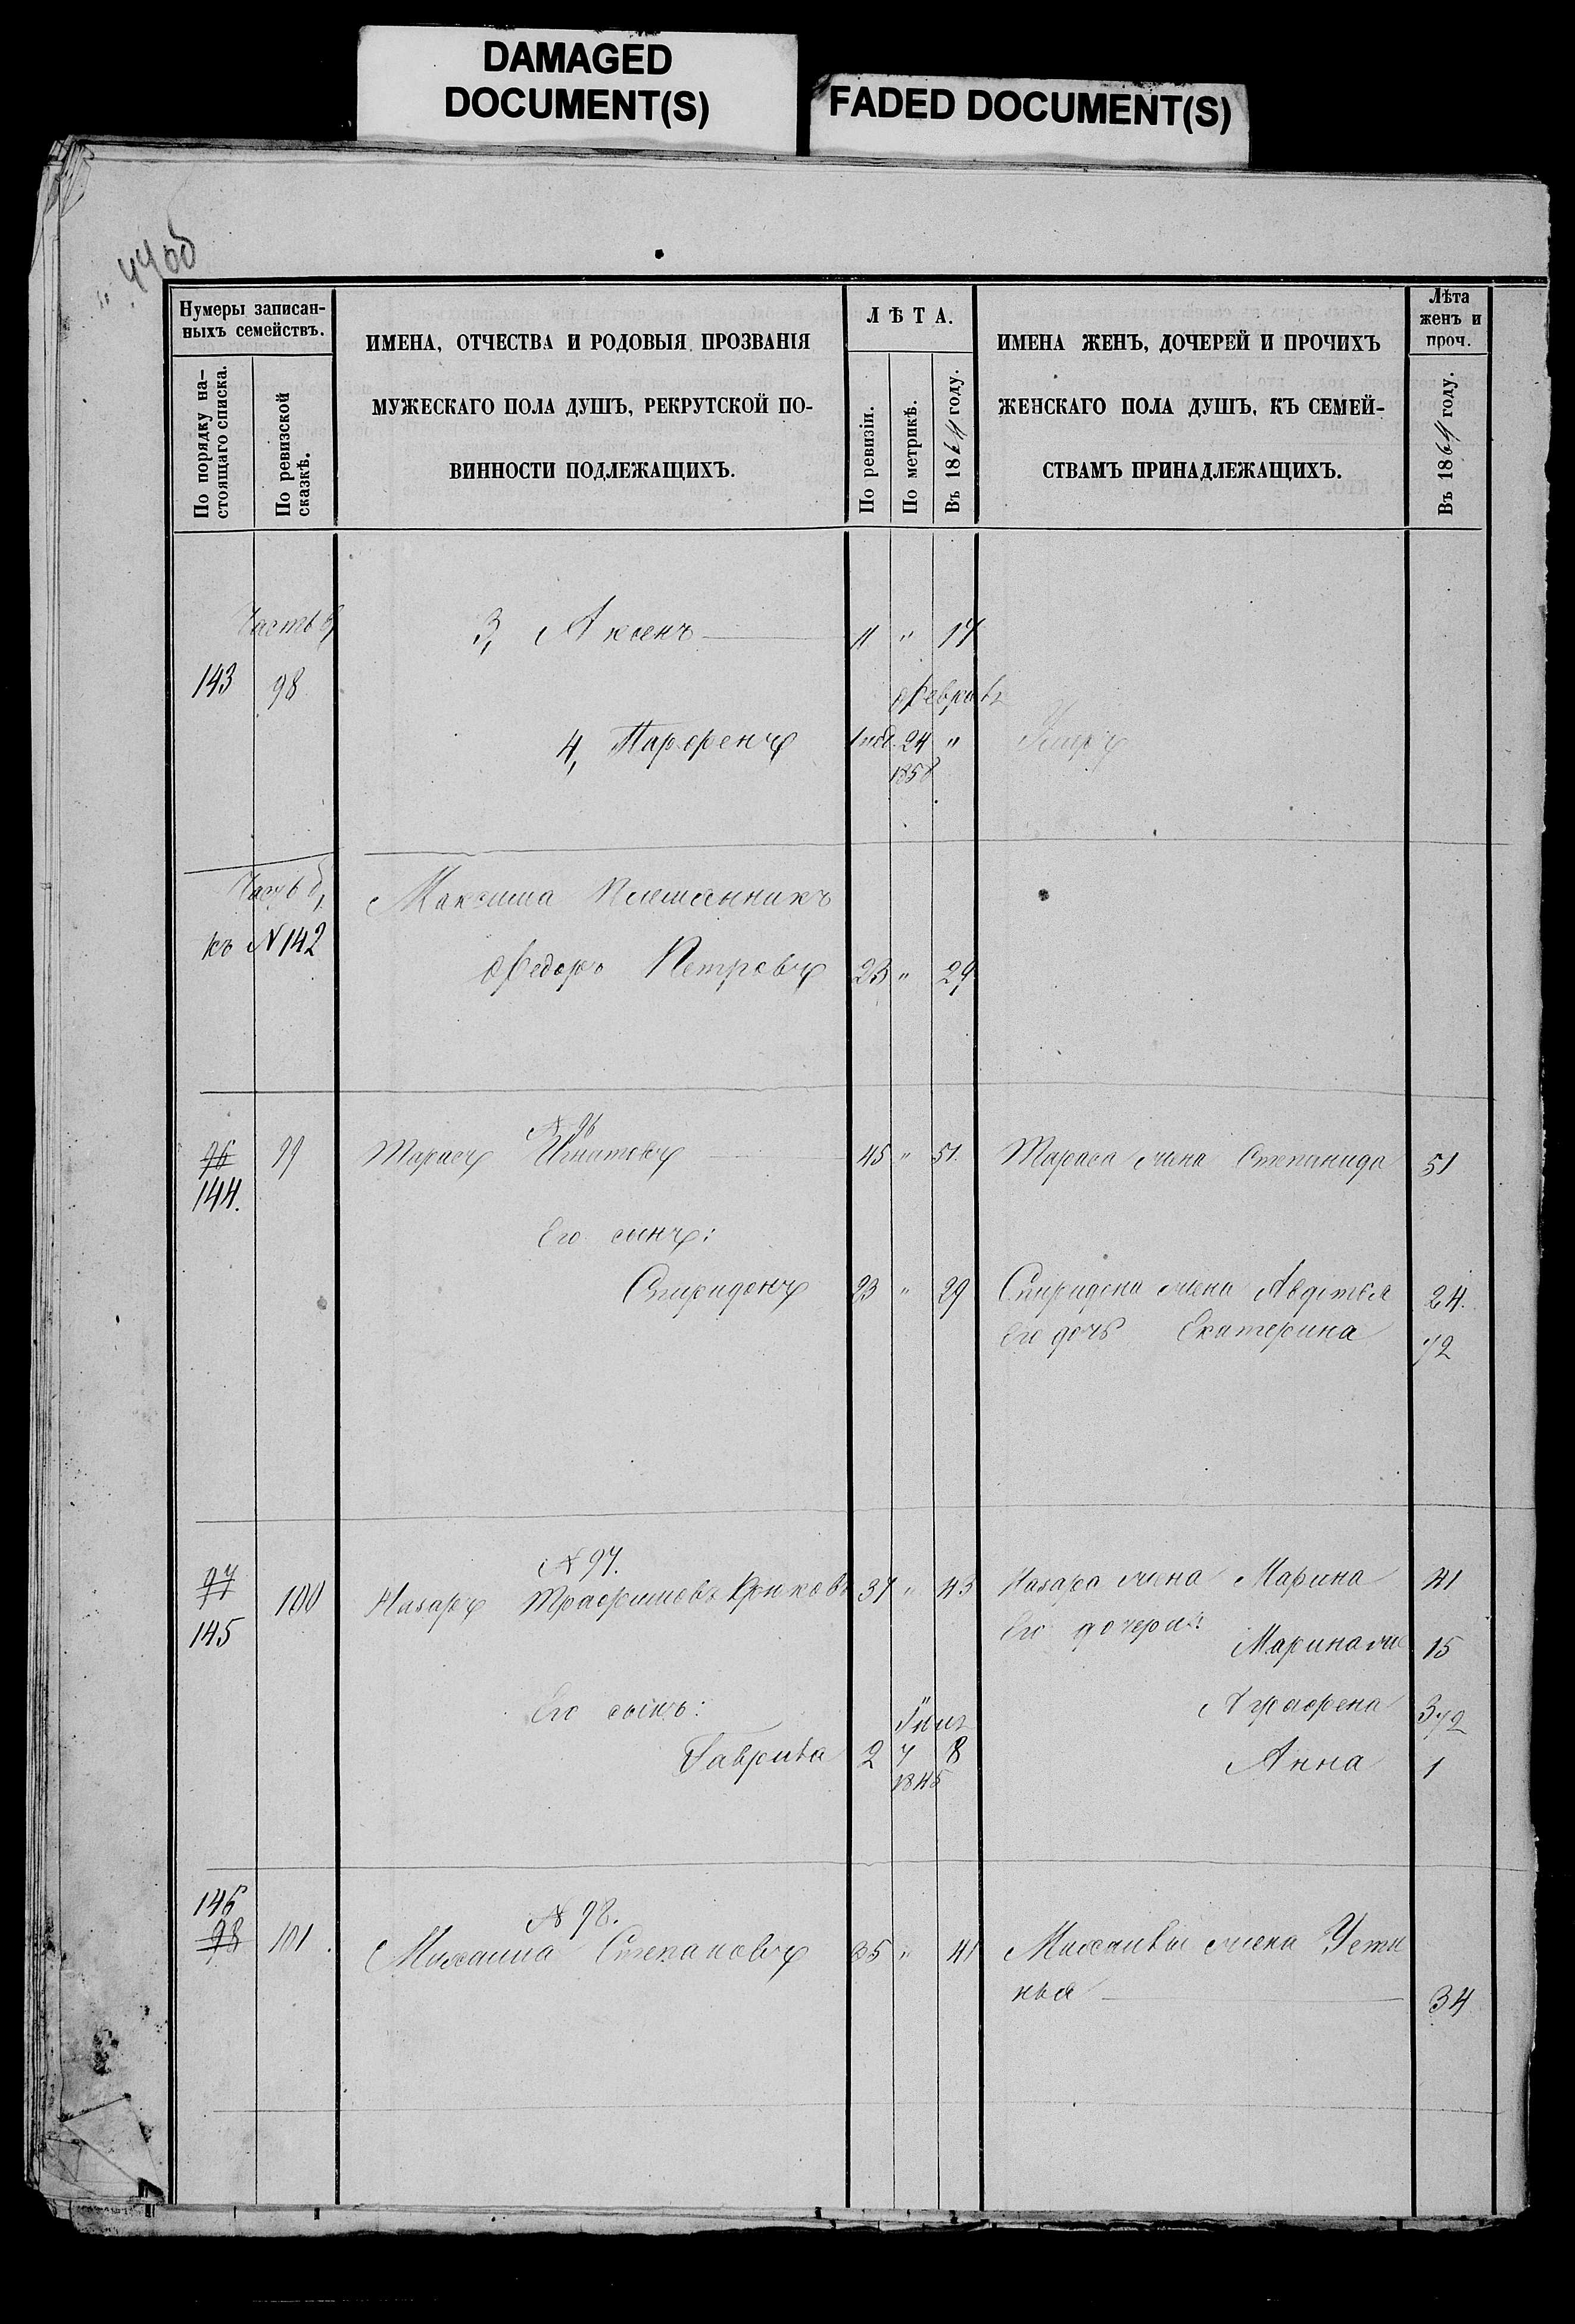 DAMAGED
DOCUMENT(S)
FADED DOCUMENT(S)
44об
Нумеры записан-
ныхъ семействъ.
По порядку на-
стоящаго списка.
По ревизской
сказкѣ.
ИМЕНА, ОТЧЕСТВА И РОДОВЫЯ ПРОЗВАНІЯ
МУЖЕСКАГО ПОЛА ДУШЪ, РЕКРУТСКОЙ ПО-
ВИННОСТИ ПОДЛЕЖАЩИХЪ.
ЛѢТА.
По ревизіи.
По метрикѣ.
Въ 1864 году.
ИМЕНА ЖЕНЪ, ДОЧЕРЕЙ И ПРОЧИХЪ
ЖЕНСКАГО ПОЛА ДУШЪ, КЪ СЕМЕЙ-
СТВАМЪ ПРИНАДЛЕЖАЩИХЪ.
Лѣта
женъ и
проч.
Въ 1864 году.
Часть
3, Аксенъ 11 " 17
143 98
Февраля
4, Парфенъ 24 " Умеръ
1858
Часть
Максима Племянникъ
къ N 142
Федоръ Петровъ 23 " 29
N 96
96 99 Тарасъ Игнатовъ 45 " 51 Тараса жена Степанида 51
144.
Его сынъ:
Спиридонъ 23 " 29 Спиридона жена Авдотья 24.
Его дочь Екатерина 1/2
N 97.
97 100 Назаръ Трафимовъ 37 " 43 Назара жена Марина 41
145
Его дочери:
15
Его сынъ: Аграфена 3 1/2
Гаврила 2 7 8 Анна 1
1845
146
N 98.
98 101. Михаила Степановъ 35 " 41 Михаилы жена Усти
нья 34